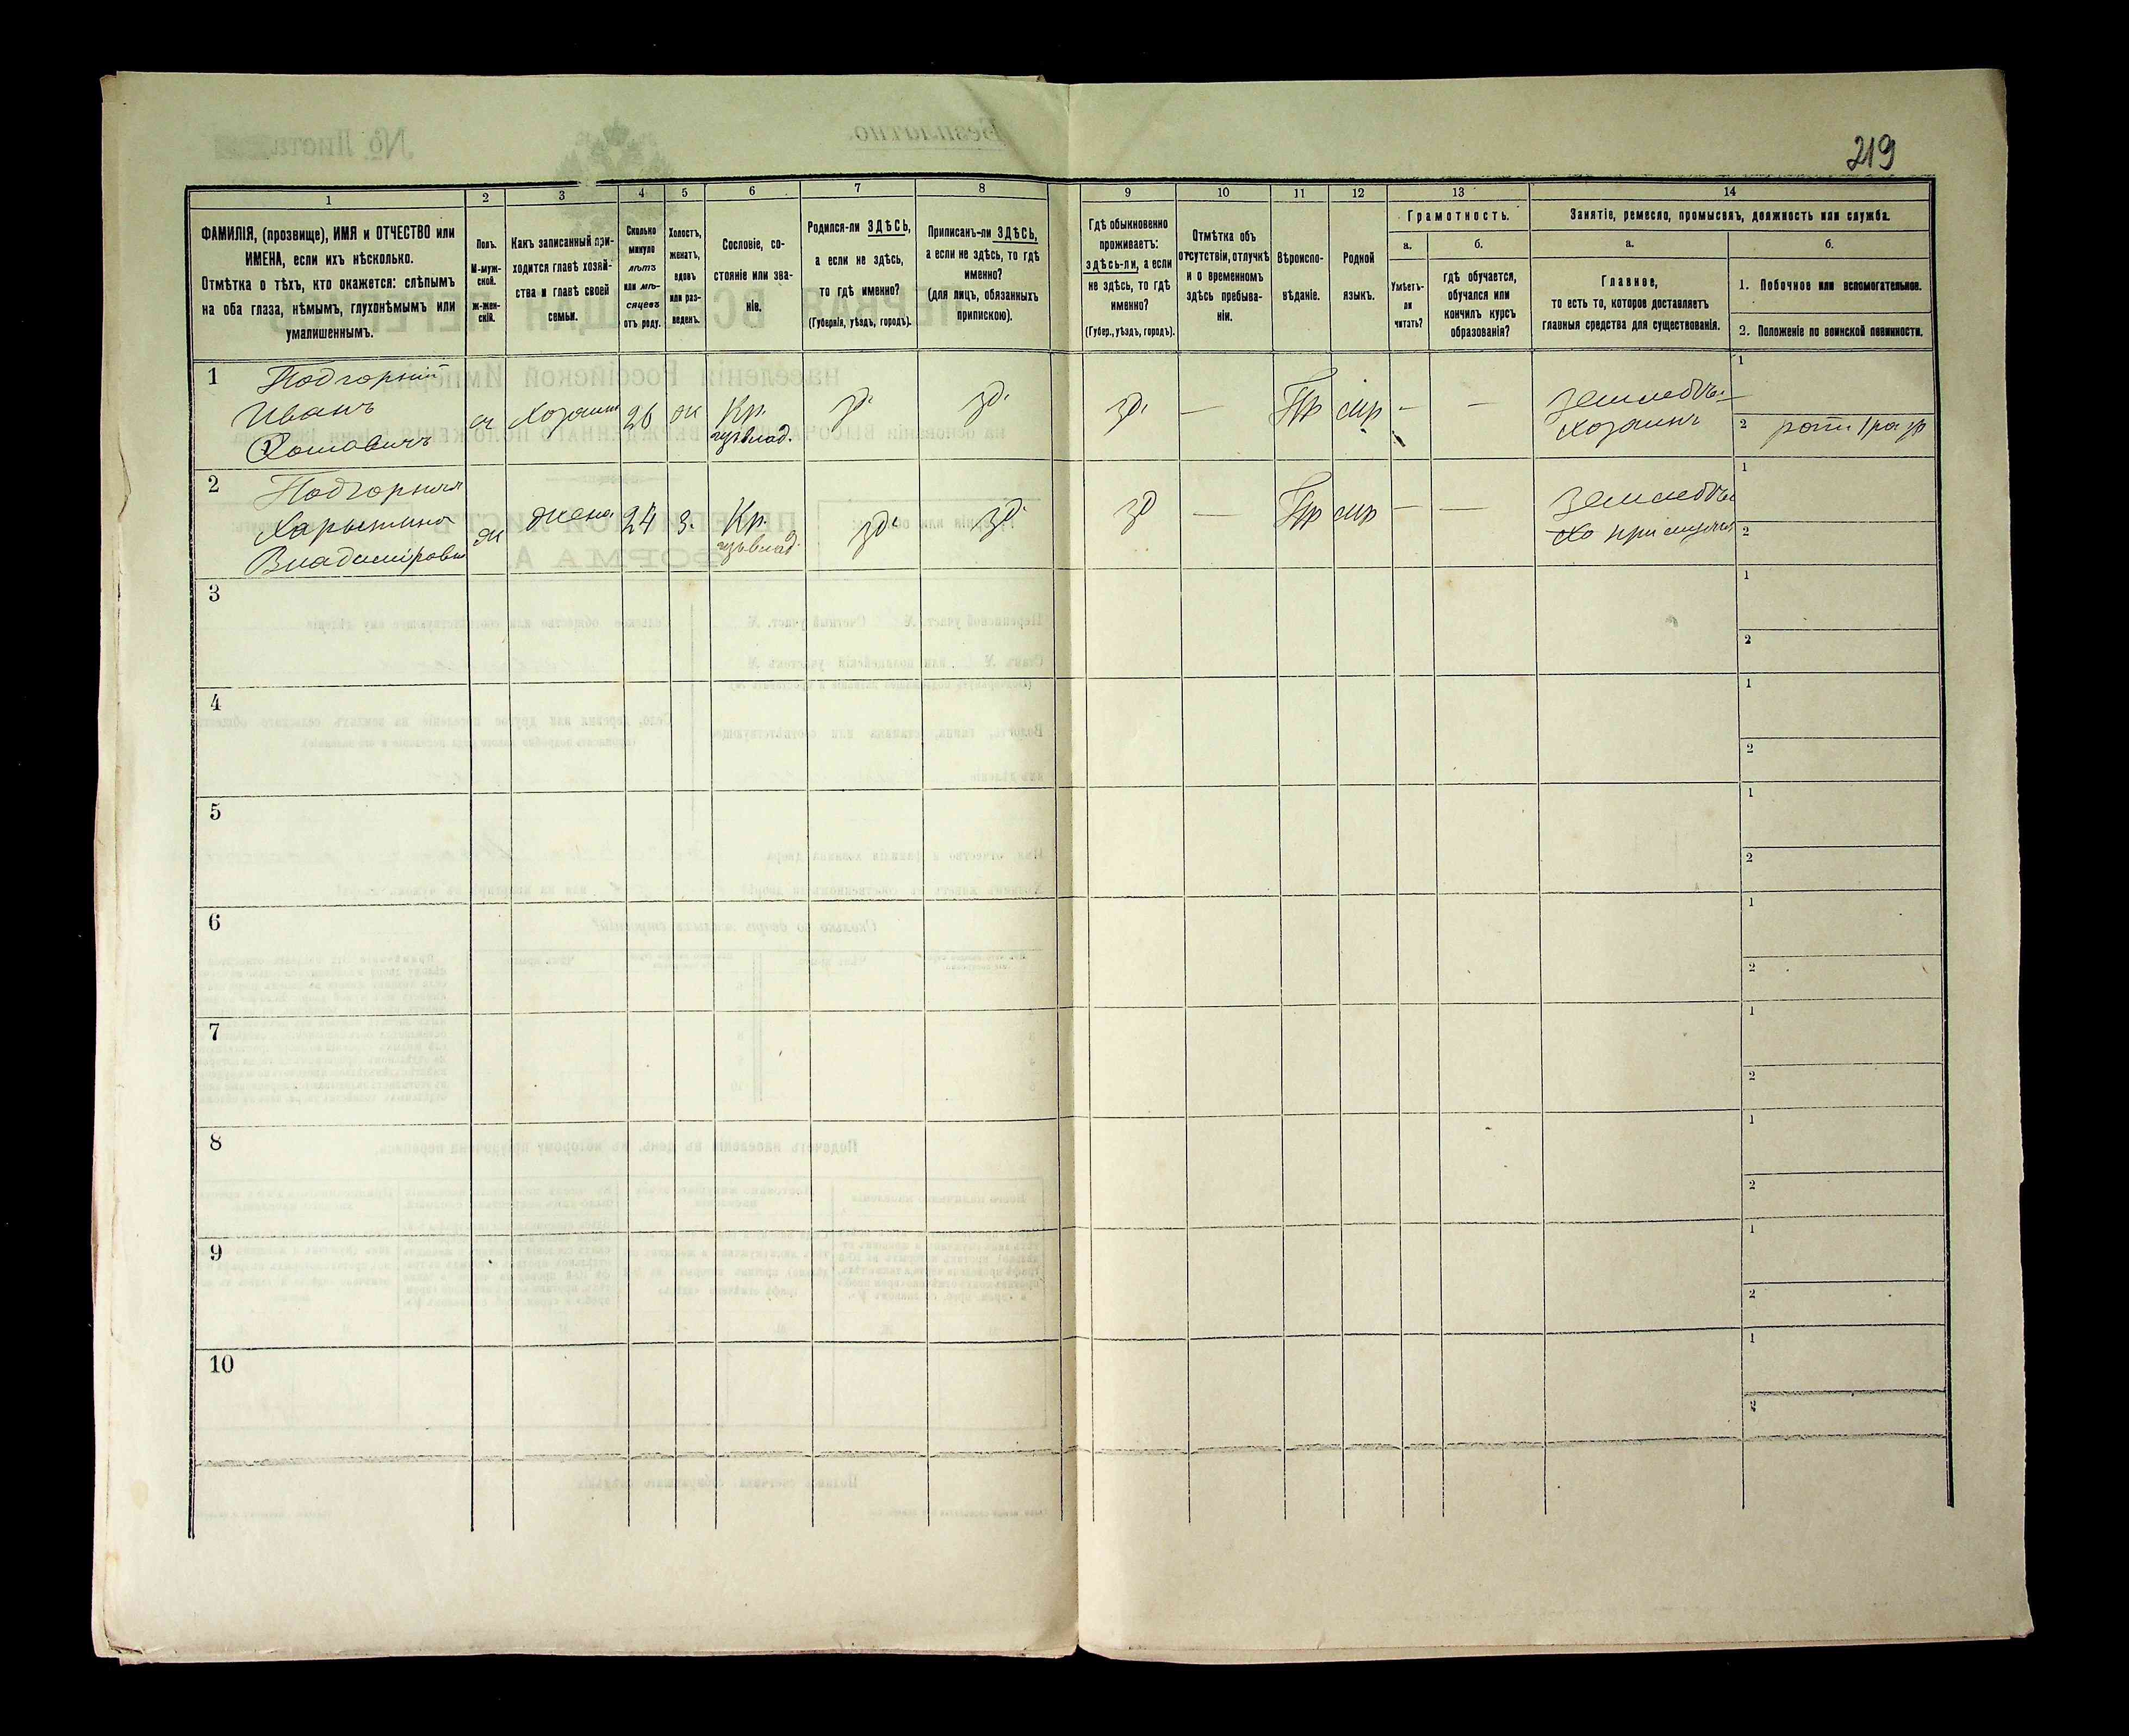 219
1
2
3
4
5
6
7
8
9
10
11
12
13
14
ФАМИЛІЯ, (прозвище), ИМЯ и ОТЧЕСТВО или
ИМЕНА, если ихъ нѣсколько.
Отмѣтка о тѣхъ, кто окажется: слѣпымъ
на оба глаза, нѣмымъ, глухонѣмымъ или
умалишеннымъ.
Полъ.
М-муж-
ской.
ж-жен-
скій.
Какъ записанный при-
ходится главѣ хозяй-
ства и главѣ своей
семьи.
Сколько
минуло
лѣтъ
или мѣ-
сяцевъ
отъ роду.
Холостъ,
женатъ,
вдовъ
или раз-
веденъ.
Сословіе, со-
стояніе или зва-
ніе.
Родился-ли ЗДѢСЬ,
а если не здѣсь,
то гдѣ именно?
(Губернія, уѣздъ, городъ).
Приписанъ-ли ЗДѢСЬ,
а если не здѣсь, то гдѣ
именно?
(для лицъ, обязанныхъ
припискою).
Гдѣ обыкновенно
проживаетъ:
здѣсь-ли, а если
не здѣсь, то гдѣ
именно?
(Губер., уѣздъ, городъ).
Отмѣтка объ
отсутствіи, отлучкѣ
и о временномъ
здѣсь пребыва-
ніи.
Вѣроиспо-
вѣданіе.
Родной
языкъ.
Грамотность.
а.
Умѣетъ-
ли
читать?
б.
гдѣ обучается,
обучался или
кончилъ курсъ
образованія?
Занятіе, ремесло, промыселъ, должность или служба.
а.
Главное,
то есть то, которое доставляетъ
главныя средства для существованія.
б.
1. Побочное или вспомогательное.
2. Положеніе по воинской повинности.
1
Подгорный
Иванъ
Хомовичъ
м
Хозяинъ
26
ж
Кр.
изъ влад.
зд.
зд.
зд.
—
Пр
мр
—
—
Землед.
хозяинъ
1
2 рат. 1 раз
2
Подгорная
Харытина
Владиміровна
ж
жена
24
з.
Кр.
изъ влад.
зд.
зд.
зд
—
Пр
мр
—
—
Землед.
при мужѣ
1
2
3
1
2
4
1
2
5
1
2
6
1
2
7
1
2
8
1
2
9
1
2
10
1
2